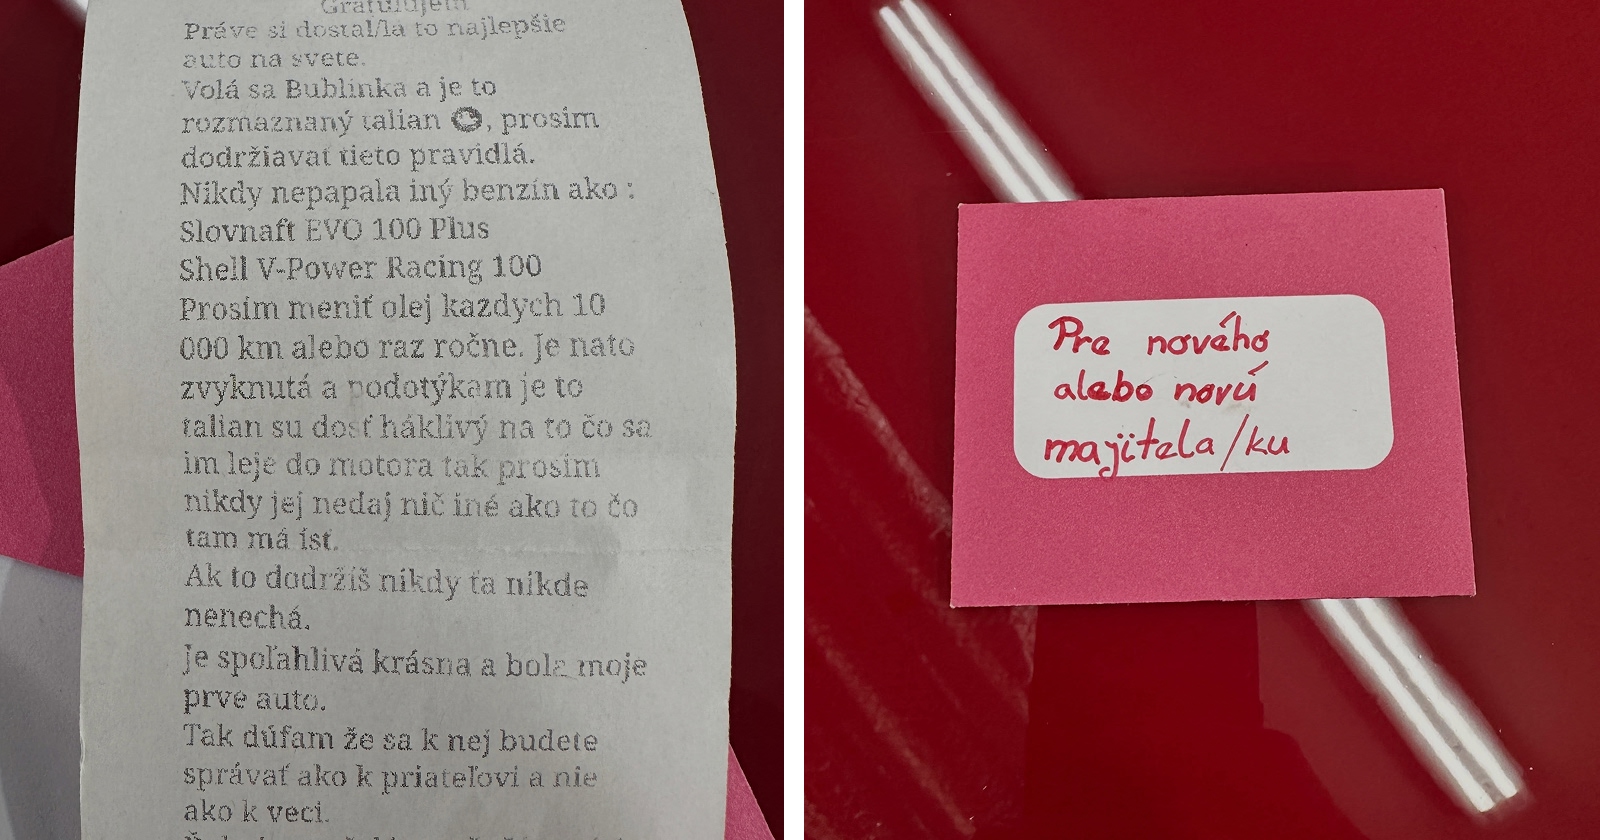 Gratulujem
Práve si dostal/la to najlepšie
auto na svete.
Volá sa Bublinka a je to
rozmaznaný talian 😉, prosim
dodržiavať tieto pravidlá.
Nikdy nepapala iný benzín ako :
Slovnaft EVO 100 Plus
Shell V-Power Racing 100
Prosím meniť olej kazdych 10
000 km alebo raz ročne. Je nato
zvyknutá a podotýkam je to
talian su dosť háklivý na to čo sa
im leje do motora tak prosím
nikdy jej nedaj nič iné ako to čo
tam má ísť.
Ak to dodržíš nikdy ťa nikde
nenechá.
Je spoľahlivá krásna a bola moje
prve auto.
Tak dúfam že sa k nej budete
správať ako k priateľovi a nie
ako k veci.
Pre nového
alebo novú
majitela/ku